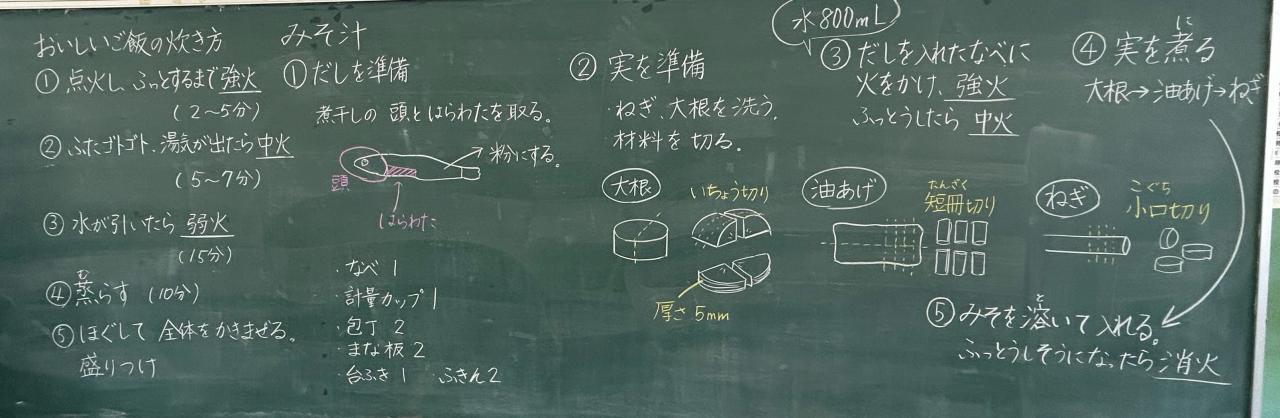 おいしいご飯の炊き方
① 点火し、ふっとするまで強火
(2〜5分)
② ふたゴトゴト、湯気が出たら中火
(5〜7分)
③ 水が引いたら 弱火
(15分)
④ 蒸らす (10分)
む
⑤ ほぐして 全体をかきまぜる。
盛りつけ
みそ汁
① だしを準備
煮干しの 頭とはらわたを取る。
頭
はらわた
粉にする。
・なべ 1
・計量カップ 1
・包丁 2
・まな板 2
・台ふき 1 ・ふきん 2
② 実を準備
・ねぎ、大根を洗う。
材料を切る。
大根
いちょう切り
厚さ 5mm
油あげ
たんざく
短冊切り
ねぎ
こぐち
小口切り
水 800mL
③ だしを入れたなべに
火をかけ、強火
ふっとうしたら 中火
④ 実を煮る
に
大根→油あげ→ねぎ
⑤ みそを溶いて入れる。
と
ふっとうしそうになったら消火